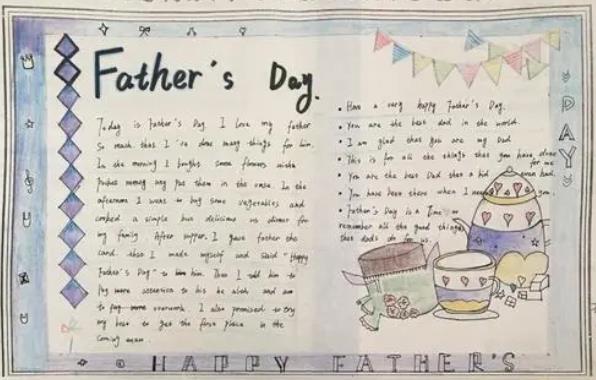 Father's Day.
Today is Father's Day. I love my father
So much that I 've done many things for him.
In the morning I bought some flowers with
pocket money and put them in the vase. In the
afternoon I went to buy some vegetables and
cooked a simple but delicious dinner for
my family. After supper, I gave father the
card that I made myself and said "Happy
Father's Day" to him. Then I told him to
pay more attention to his health and
to overwork. I also promised to try
my best to get the first place in the
coming exam.
Have a very happy Father's Day.
You are the best dad in the world.
I am glad that you are my Dad
This is for all the things that you have done
for me
You are the best Dad that a kid ever had.
You have been there when I you.
Father's Day is a Time to
remember all the good things
that dads do for us.
DAY
HAPPY FATHER'S